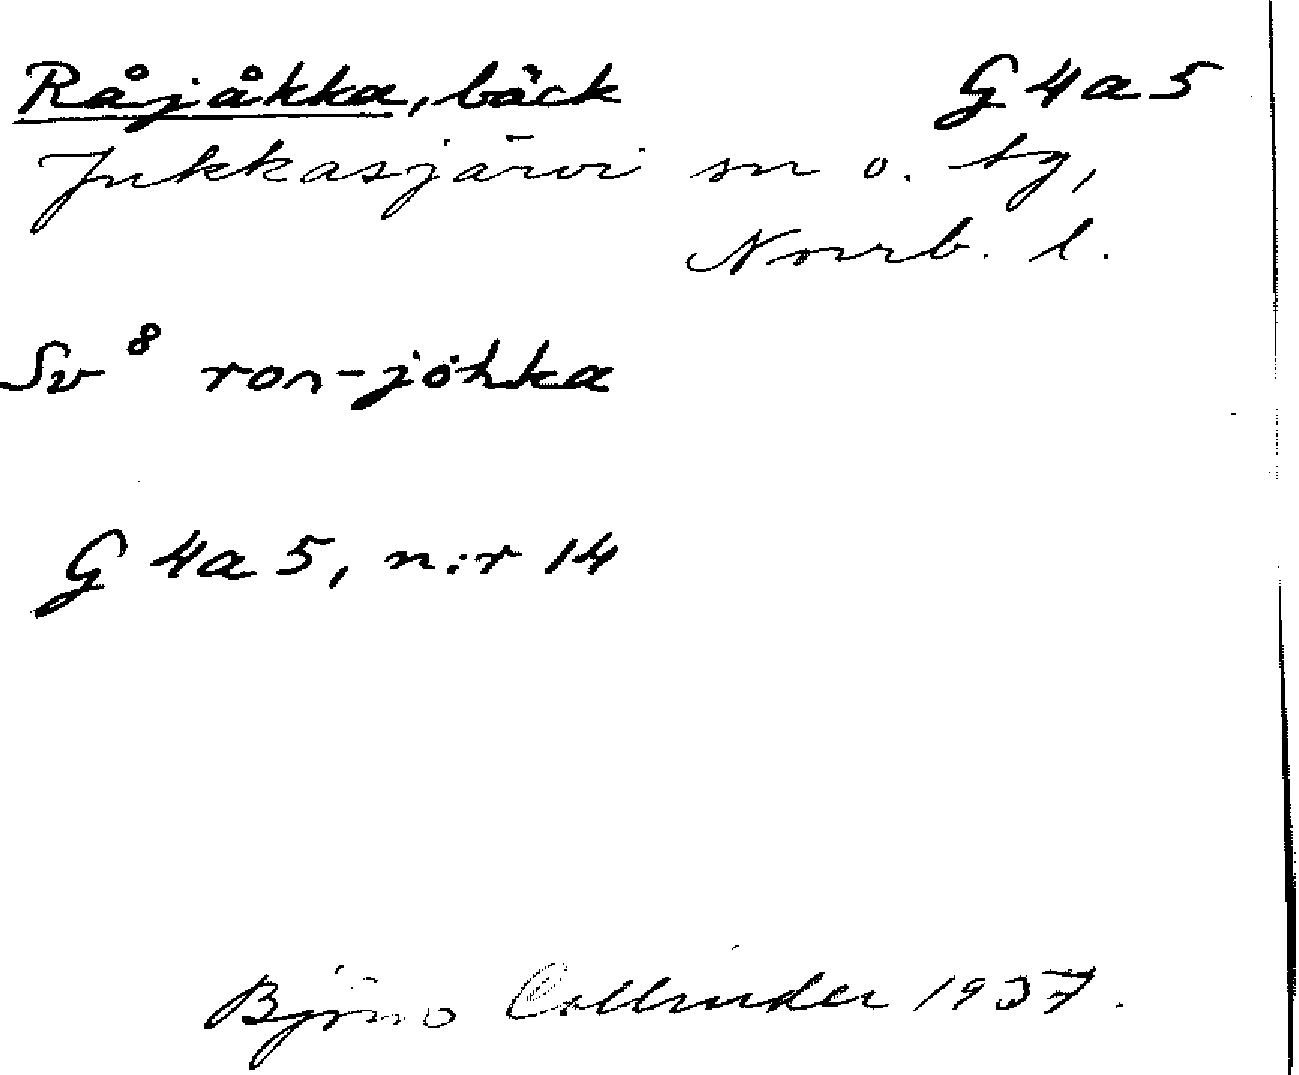 Råjåkka, bäck G4a5
Jukkasjärvi sn o. tg,
Norrb. l.
Sv⁸ ron-jòhka
G 4a 5, n:r 14
Björn Collinder 1937.